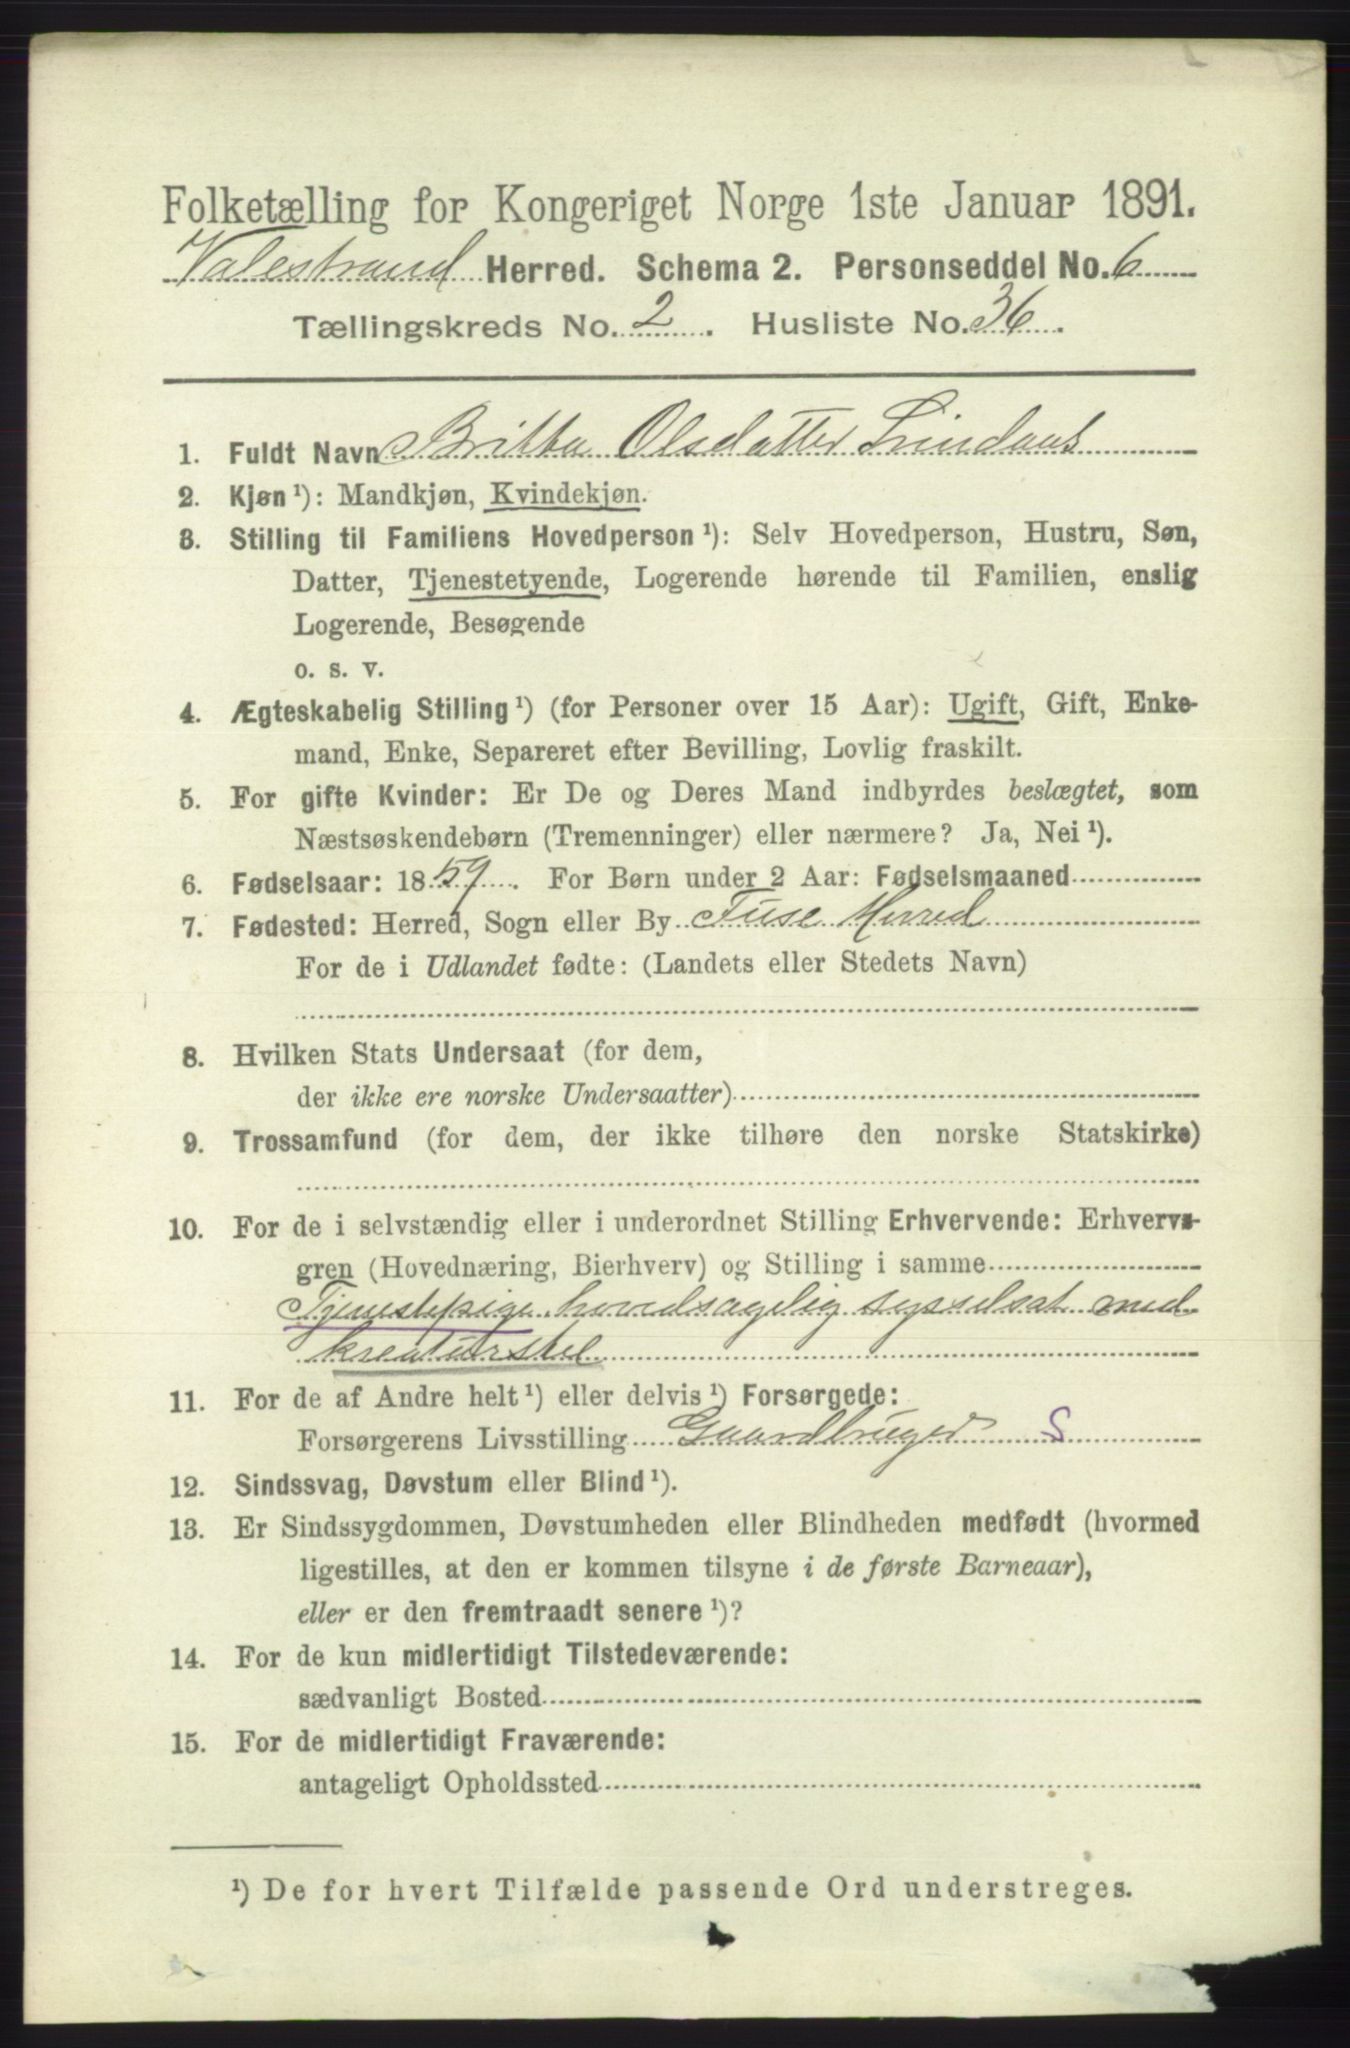 Folketælling for Kongeriget Norge 1ste Januar 1891.
Valestrand Herred. Schema 2. Personseddel No. 6
Tællingskreds No. 2. Husliste No. 36.
1. Fuldt Navn Britta Olsdatter
2. Kjøn ¹): Mandkjøn, Kvindekjøn.
3. Stilling til Familiens Hovedperson ¹): Selv Hovedperson, Hustru, Søn,
Datter, Tjenestetyende, Logerende hørende til Familien, enslig
Logerende, Besøgende
o. s. v.
4. Ægteskabelig Stilling ¹) (for Personer over 15 Aar): Ugift, Gift, Enke-
mand, Enke, Separeret efter Bevilling, Lovlig fraskilt.
5. For gifte Kvinder: Er De og Deres Mand indbyrdes beslægtet, som
Næstsøskendebørn (Tremenninger) eller nærmere? Ja, Nei ¹).
6. Fødselsaar: 1859. For Børn under 2 Aar: Fødselsmaaned
7. Fødested: Herred, Sogn eller By Fuse Herred
For de i Udlandet fødte: (Landets eller Stedets Navn)
8. Hvilken Stats Undersaat (for dem,
der ikke ere norske Undersaatter)
9. Trossamfund (for dem, der ikke tilhøre den norske Statskirke)
10. For de i selvstændig eller i underordnet Stilling Erhvervende: Erhvervs-
gren (Hovednæring, Bierhverv) og Stilling i samme
Tjenestepige hovedsagelig sysselsat med
kreaturstel
11. For de af Andre helt ¹) eller delvis ¹) Forsørgede:
Forsørgerens Livsstilling Gaardbruger S
12. Sindssvag, Døvstum eller Blind ¹).
13. Er Sindssygdommen, Døvstumheden eller Blindheden medfødt (hvormed
ligestilles, at den er kommen tilsyne i de første Barneaar),
eller er den fremtraadt senere ¹)?
14. For de kun midlertidigt Tilstedeværende:
sædvanligt Bosted
15. For de midlertidigt Fraværende:
antageligt Opholdssted
¹) De for hvert Tilfælde passende Ord understreges.